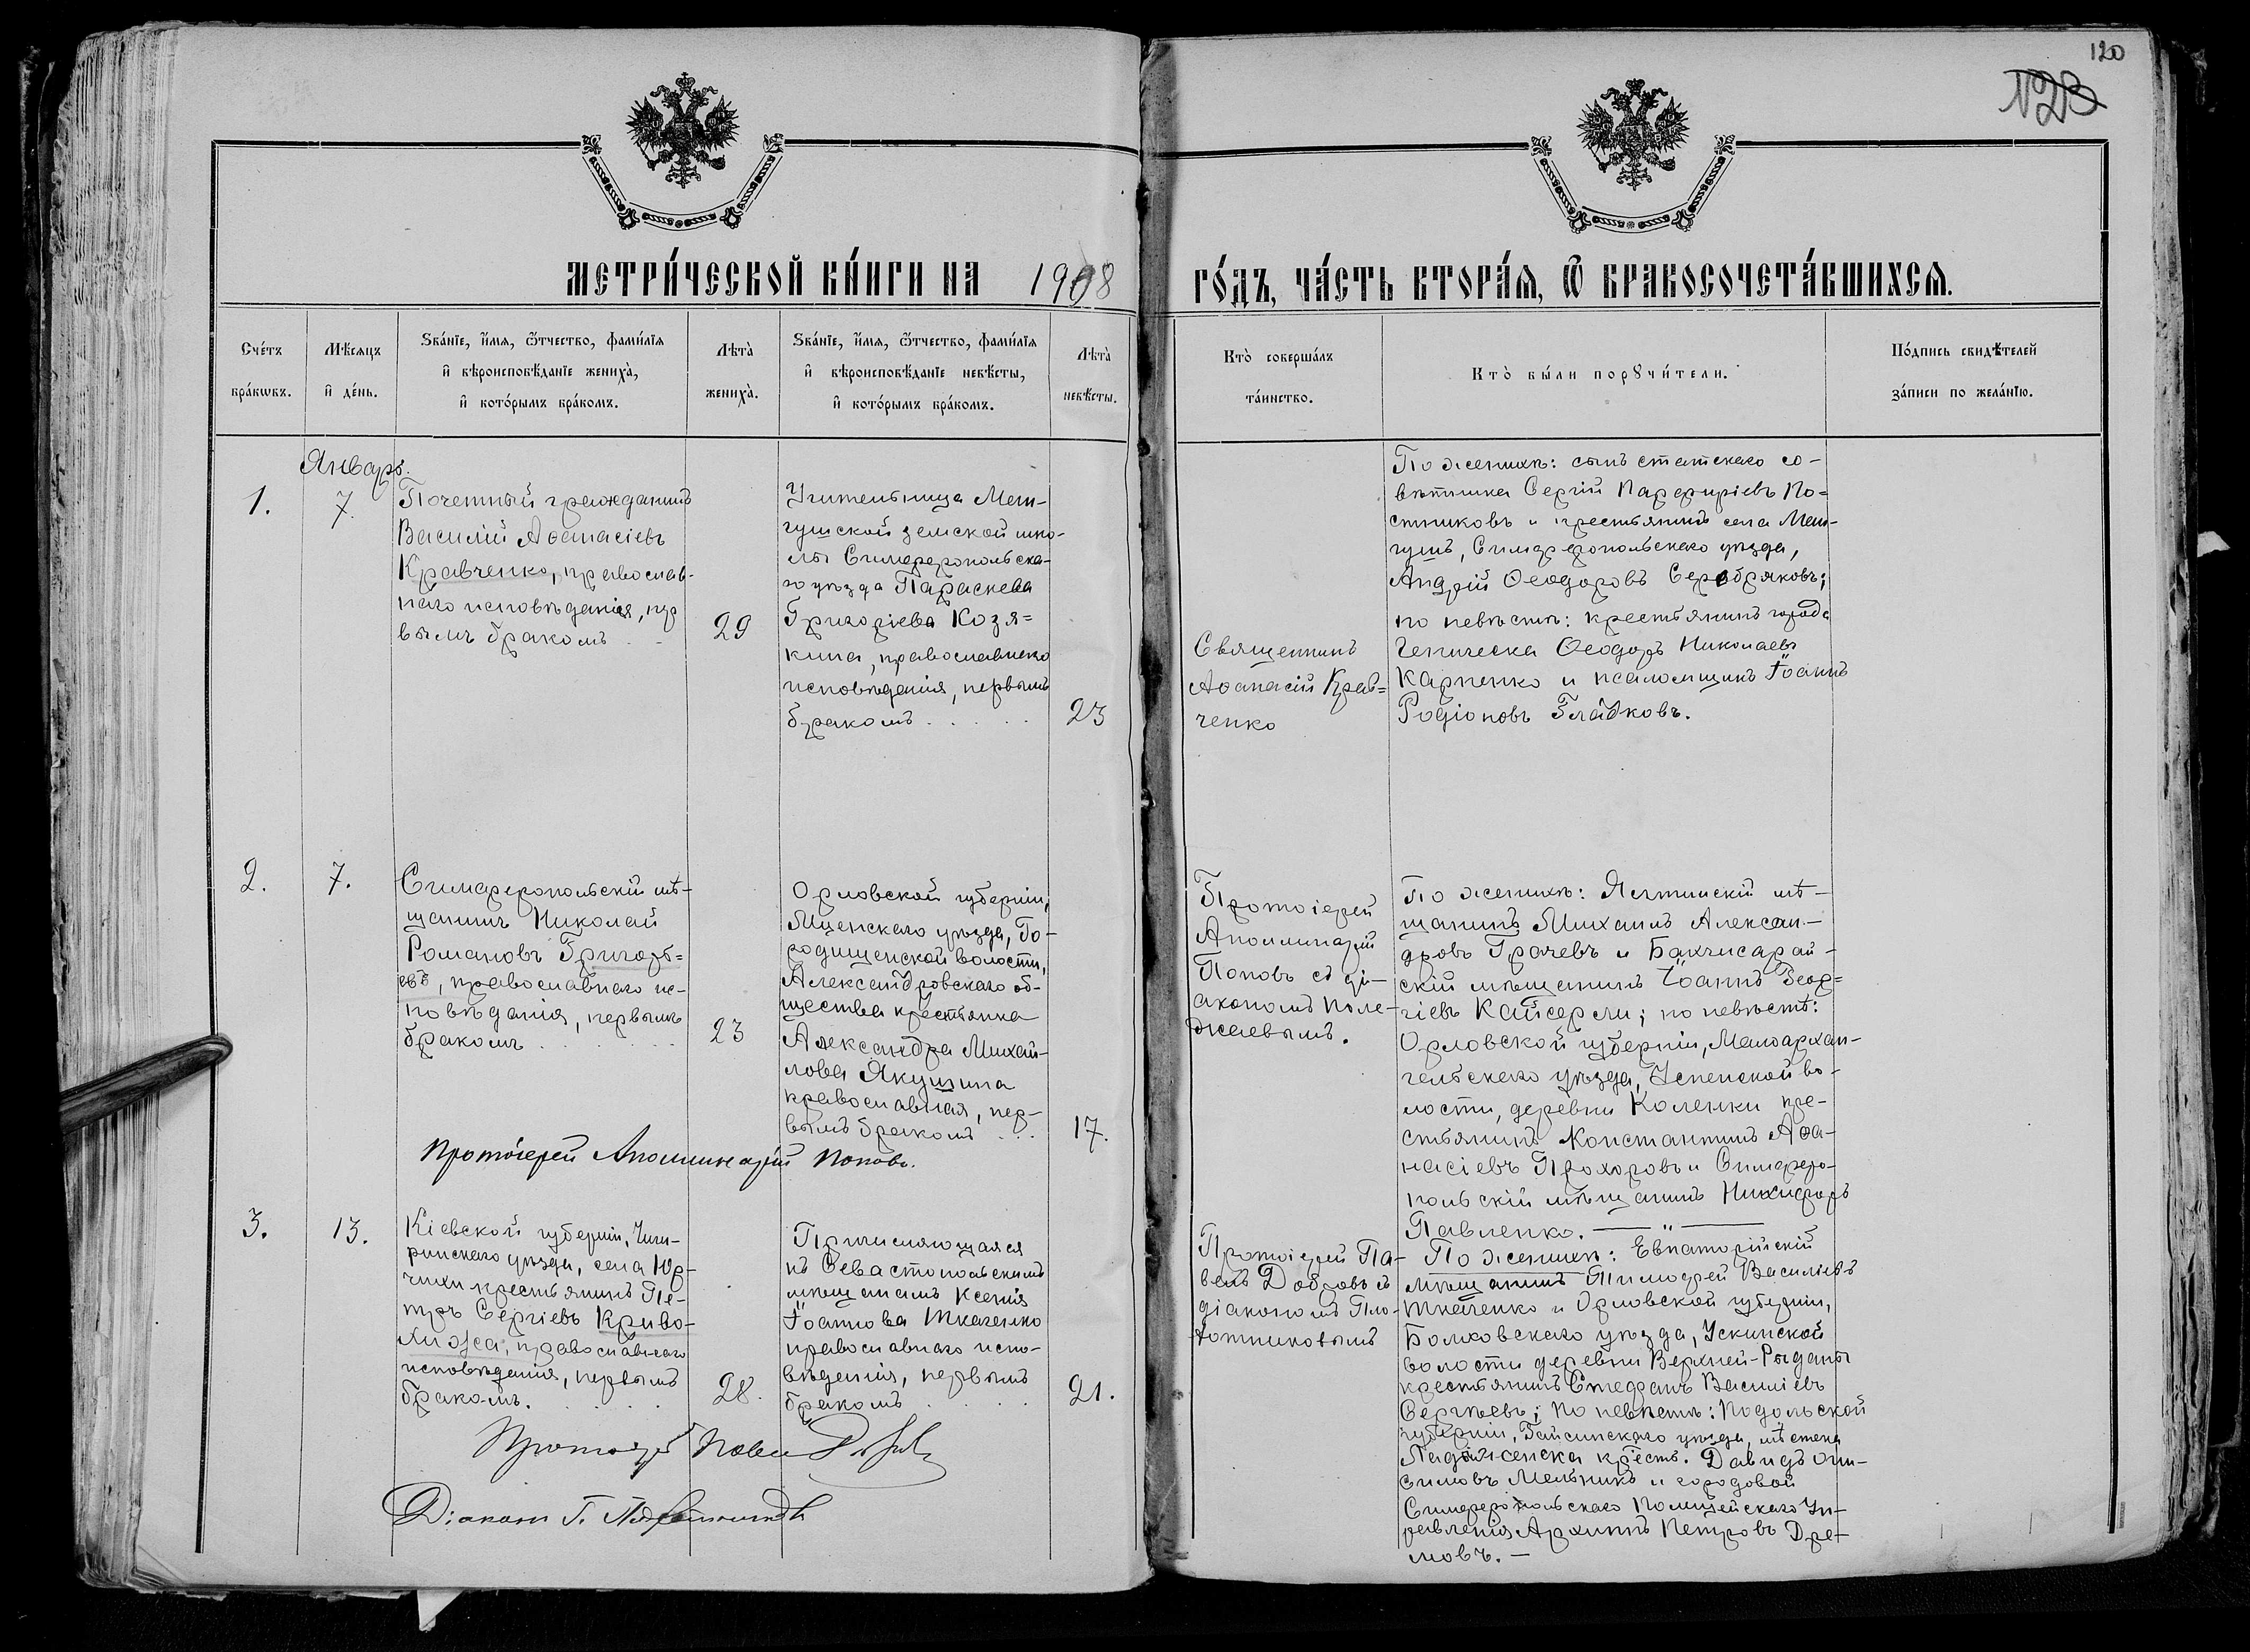 120
123
МЕТРИ́ЧЕСКОЙ КНИ́ГИ НА 1908 ГО́ДЪ, ЧА́СТЬ ВТОРА́Ѧ, Ѿ БРАКОСОЧЕТА́ВШИХСѦ.
Сче́тъ
бра́кѡвъ.
Мѣ́сяцъ
и҆ де́нь.
Ѕва́нїе, и҆́мѧ, ѻ҆́тчество, фами́лїѧ
и҆ вѣроисповѣ́данїе жениха̀,
и҆ кото́рымъ бра́комъ.
Лѣта̀
жениха̀.
Ѕва́нїе, и҆́мѧ, ѻ҆́тчество, фами́лїѧ
и҆ вѣроисповѣ́данїе невѣ́сты,
и҆ кото́рымъ бра́комъ.
Лѣта̀
невѣ́сты.
Кто̀ соверша́лъ
та́инство.
Кто̀ бы́ли порꙋчи́тели.
По́дпись свидѣ́телей
за́писи по жела́нїю.
Январь.
1.
7.
Почетный гражданинъ
Василій Аѳанасіевъ
Кравченко, православ-
наго исповѣданія, пер
вымъ бракомъ . .
29
Учительница Ман-
гушской земской шко-
лы Симферопольска-
го уѣзда Параскева
Григоріева Козя=
кина, православнаго
исповѣданія, первымъ
бракомъ . . . . .
23
Священникъ
Аѳанасій Крав=
ченко
По женихѣ: сынъ статскаго со-
вѣтника Сергій Парфиріевъ По=
стниковъ и крестьянинъ села Ман-
гушъ, Симферопольскаго уѣзда,
Андрей Ѳеодоровъ Серебряковъ;
по невѣстѣ: крестьянинъ города
Геническа Ѳеодоръ Николаевъ
Карпенко и псаломщикъ Іоаннъ
Родіоновъ Гладковъ.
2.
7.
Симферопольскій мѣ-
щанинъ Николай
Романовъ Григорь=
евъ, православнаго ис-
повѣданія, первымъ
бракомъ . . . . . .
23
Орловской губерніи,
Мценскаго уѣзда, Го-
родищенской волости,
Александровскаго об-
щества крестьянка
Александра Михай-
лова Якушина
православная, пер-
вымъ бракомъ . . .
17.
Протоіерей
Аполлинарій
Поповъ съ ді-
акономъ Поле-
жаевымъ.
По женихѣ: Ялтинскій мѣ-
щанинъ Михаилъ Алексан-
дровъ Грачевъ и Бахчисарай-
скій мѣщанинъ Іоаннъ Геор=
гіевъ Кайсерли; по невѣстѣ:
Орловской губерніи, Малоархан-
гельскаго уѣзда, Успенской во-
лости, деревни Коленки кре-
стьянинъ Константинъ Аѳа-
насіевъ Прохоровъ и Симферо-
польскій мѣщанинъ Никифоръ
Павленко. — " —
Протоіерей Аполлинарій Поповъ.
3.
13.
Кіевской губерніи, Чиги-
ринскаго уѣзда, села Юр-
чихи крестьянинъ Пе-
тръ Сергіевъ Криво-
лижа, православнаго
исповѣданія, первымъ
бракомъ. . . . .
28.
Причисляющаяся
къ Севастопольскимъ
мѣщанамъ Ксенія
Іоаннова Ткаченко
православнаго испо-
вѣданія, первымъ
бракомъ . . . .
21.
Протоіерей Па-
велъ Добровъ съ
діакономъ Пло-
тниковымъ
По женихѣ: Евпаторійскій
мѣщанинъ Тимофей Василіевъ
Ткаченко и Орловской губерніи,
Болховскаго уѣзда, Ускинской
волости деревни Верхней-Рыданы
крестьянинъ Стефанъ Василіевъ
Сергѣевъ; по невѣстѣ: Подольской
губерніи, Гайсинскаго уѣзда, мѣстечка
Ладыженска крест. Давидъ Они-
симовъ Мельникъ и городовой
Симферопольскаго Полицейскаго Уп-
равленія Архиппъ Петровъ Дре-
мовъ. —
Протоіерей Павелъ Добровъ
Діаконъ Г. Плотниковъ